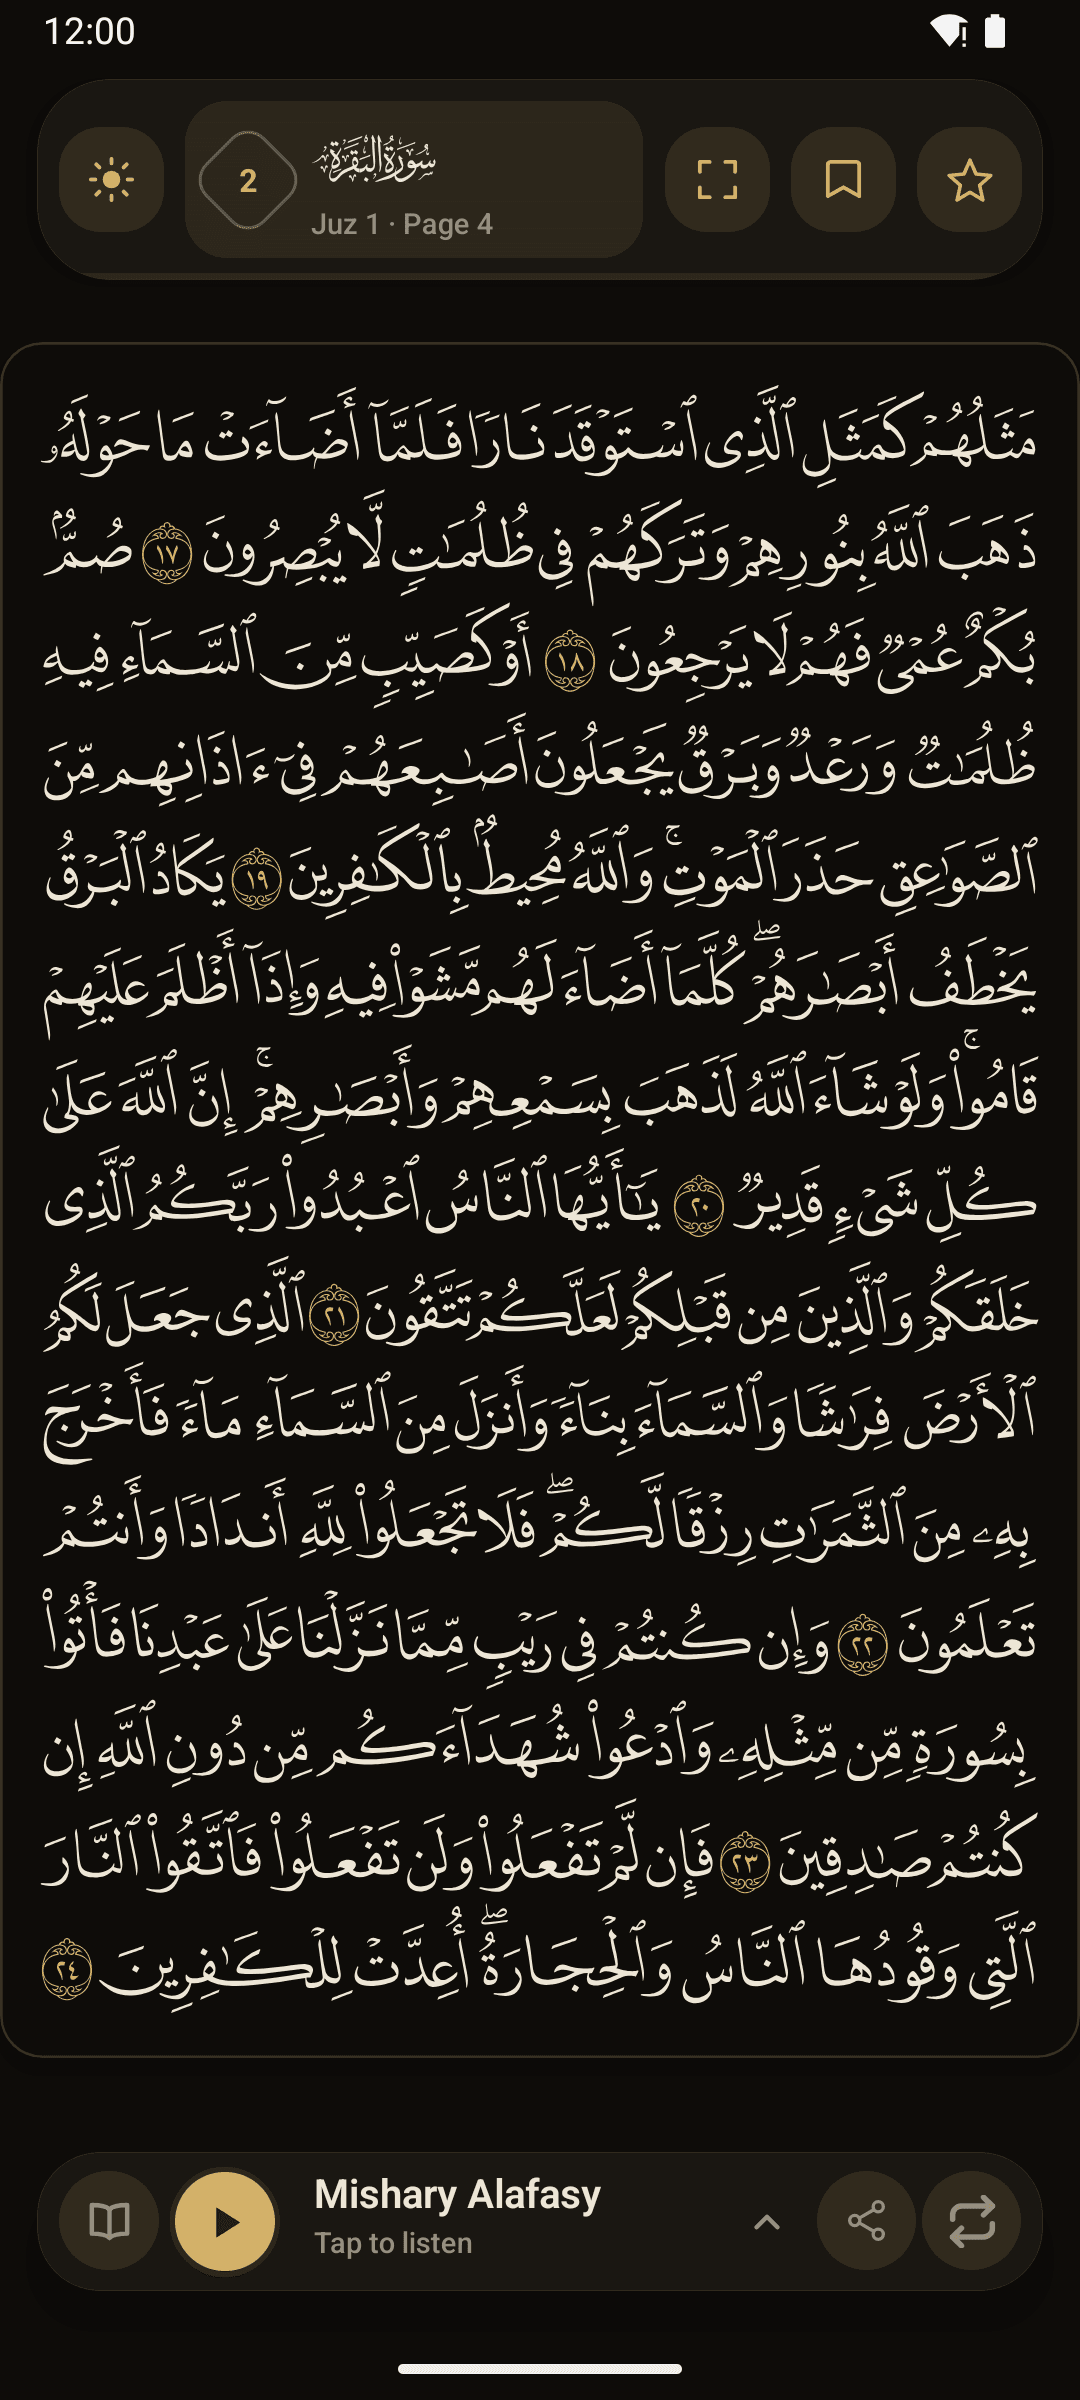 12:00
2
سُورَةُ البَقَرَةِ
Juz 1 · Page 4
مَثَلُهُمْ كَمَثَلِ ٱلَّذِى ٱسْتَوْقَدَ نَارًا فَلَمَّآ أَضَآءَتْ مَا حَوْلَهُۥ
ذَهَبَ ٱللَّهُ بِنُورِهِمْ وَتَرَكَهُمْ فِى ظُلُمَـٰتٍ لَّا يُبْصِرُونَ ١٧ صُمٌّۢ
بُكْمٌ عُمْىٌ فَهُمْ لَا يَرْجِعُونَ ١٨ أَوْ كَصَيِّبٍ مِّنَ ٱلسَّمَآءِ فِيهِ
ظُلُمَـٰتٌ وَرَعْدٌ وَبَرْقٌ يَجْعَلُونَ أَصَـٰبِعَهُمْ فِىٓ ءَاذَانِهِم مِّنَ
ٱلصَّوَٰعِقِ حَذَرَ ٱلْمَوْتِ ۚ وَٱللَّهُ مُحِيطٌۢ بِٱلْكَـٰفِرِينَ ١٩ يَكَادُ ٱلْبَرْقُ
يَخْطَفُ أَبْصَـٰرَهُمْ ۖ كُلَّمَآ أَضَآءَ لَهُم مَّشَوْا۟ فِيهِ وَإِذَآ أَظْلَمَ عَلَيْهِمْ
قَامُوا۟ ۚ وَلَوْ شَآءَ ٱللَّهُ لَذَهَبَ بِسَمْعِهِمْ وَأَبْصَـٰرِهِمْ ۚ إِنَّ ٱللَّهَ عَلَىٰ
كُلِّ شَىْءٍ قَدِيرٌ ٢٠ يَـٰٓأَيُّهَا ٱلنَّاسُ ٱعْبُدُوا۟ رَبَّكُمُ ٱلَّذِى
خَلَقَكُمْ وَٱلَّذِينَ مِن قَبْلِكُمْ لَعَلَّكُمْ تَتَّقُونَ ٢١ ٱلَّذِى جَعَلَ لَكُمُ
ٱلْأَرْضَ فِرَٰشًا وَٱلسَّمَآءَ بِنَآءً وَأَنزَلَ مِنَ ٱلسَّمَآءِ مَآءً فَأَخْرَجَ
بِهِۦ مِنَ ٱلثَّمَرَٰتِ رِزْقًا لَّكُمْ ۖ فَلَا تَجْعَلُوا۟ لِلَّهِ أَندَادًا وَأَنتُمْ
تَعْلَمُونَ ٢٢ وَإِن كُنتُمْ فِى رَيْبٍ مِّمَّا نَزَّلْنَا عَلَىٰ عَبْدِنَا فَأْتُوا۟
بِسُورَةٍ مِّن مِّثْلِهِۦ وَٱدْعُوا۟ شُهَدَآءَكُم مِّن دُونِ ٱللَّهِ إِن
كُنتُمْ صَـٰدِقِينَ ٢٣ فَإِن لَّمْ تَفْعَلُوا۟ وَلَن تَفْعَلُوا۟ فَٱتَّقُوا۟ ٱلنَّارَ
ٱلَّتِى وَقُودُهَا ٱلنَّاسُ وَٱلْحِجَارَةُ ۖ أُعِدَّتْ لِلْكَـٰفِرِينَ ٢٤
Mishary Alafasy
Tap to listen